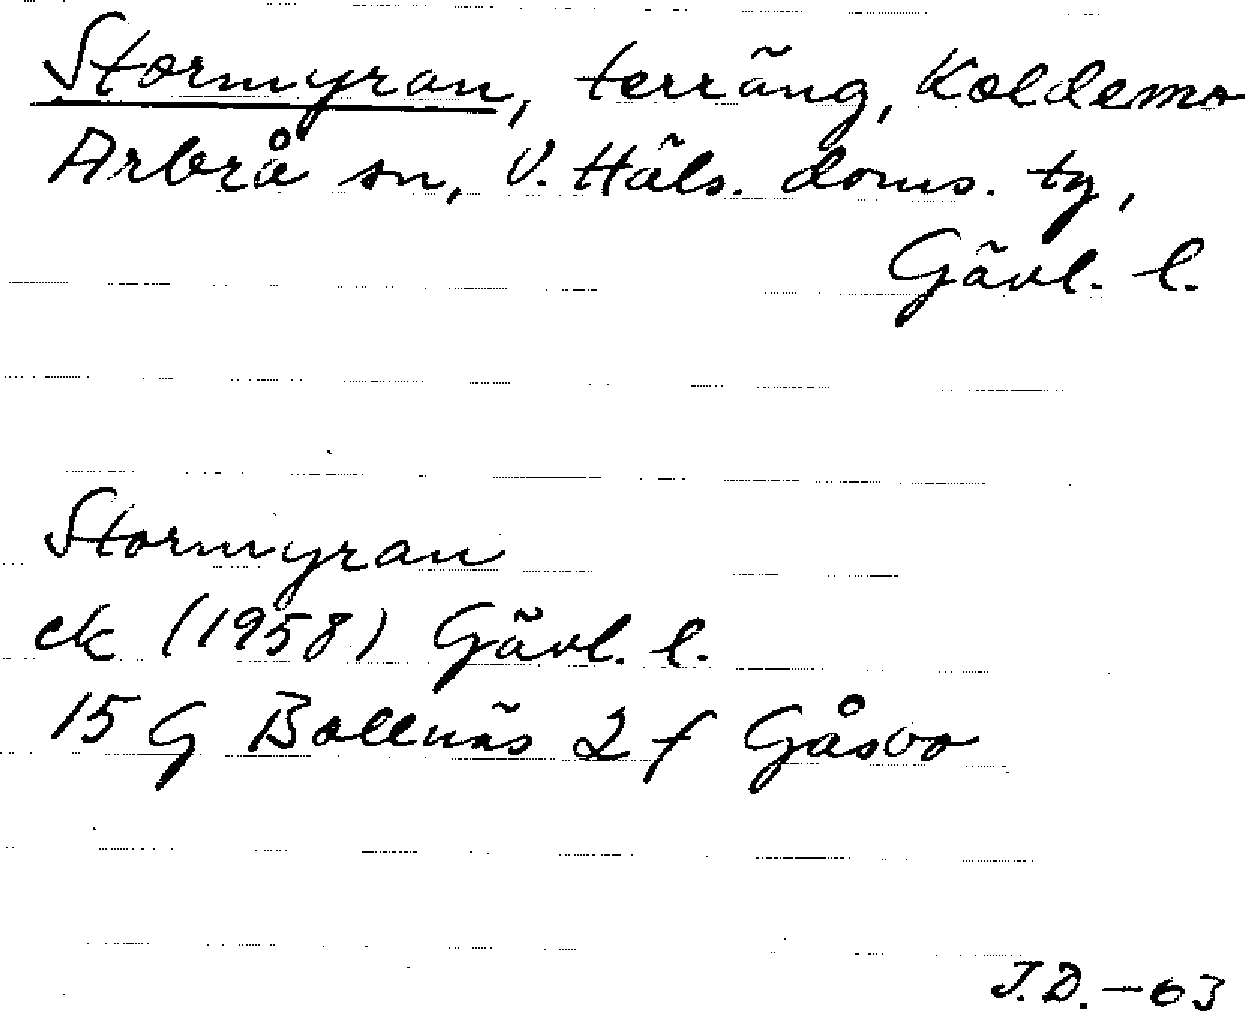 Stormyran, terräng, Koldemo
Arbrå sn, V. Häls. doms. tg,
Gävl. l.
Stormyran
ek (1958) Gävl. l.
15 G Bollnäs 2 f Gåsvo
J.D. -63